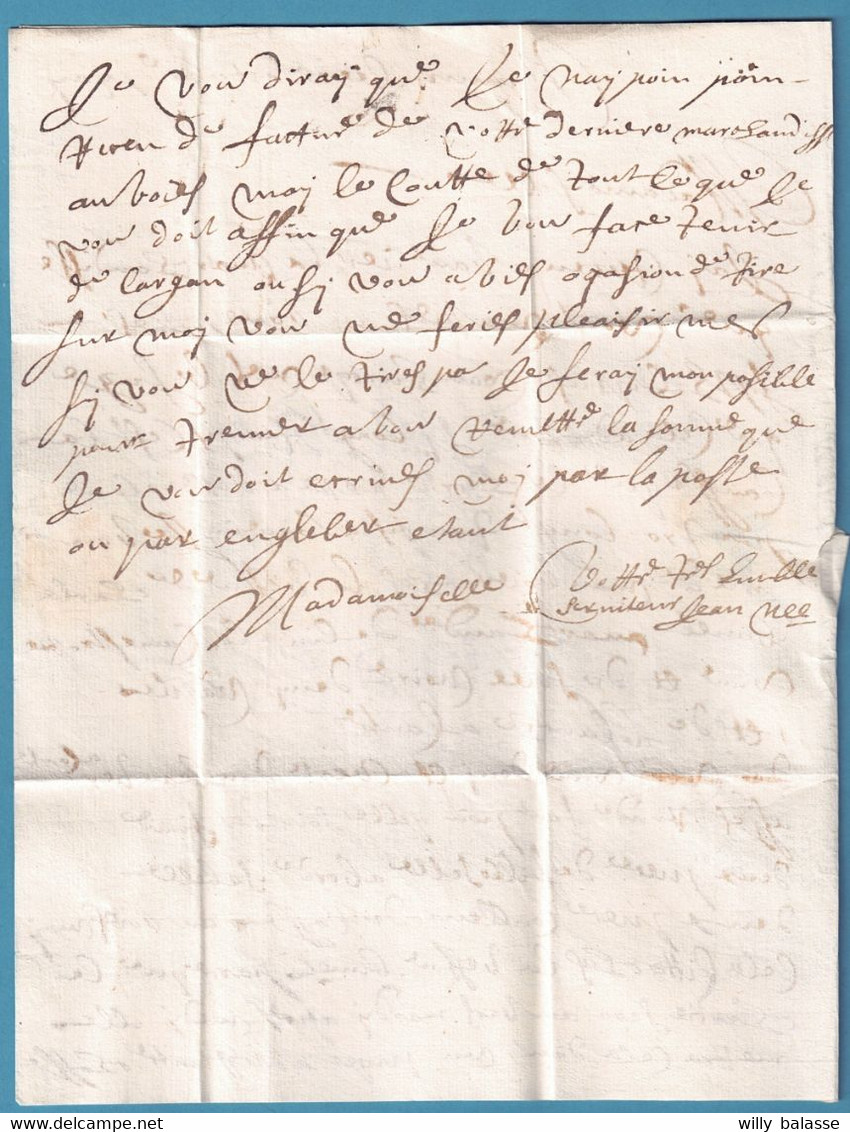 Je vou diray que Je nay poin poin
Recu de facture de votre derniere marchandisse
anvoies moy le Coutte de tout le que Je
vou doit affin que Je vou face tenir
de largan ou sy vou avies ogasion de tire
sur moy vou me feries pleaisir mes
sy vou ne le tires pa Je feray mon posible
pour trenner a vou Remettre la somme que
Je vou doit ecrives moy par la poste
ou par engleber etant
Madamoiselle Votre tres humble
serviteur Jean Nee
willy balasse